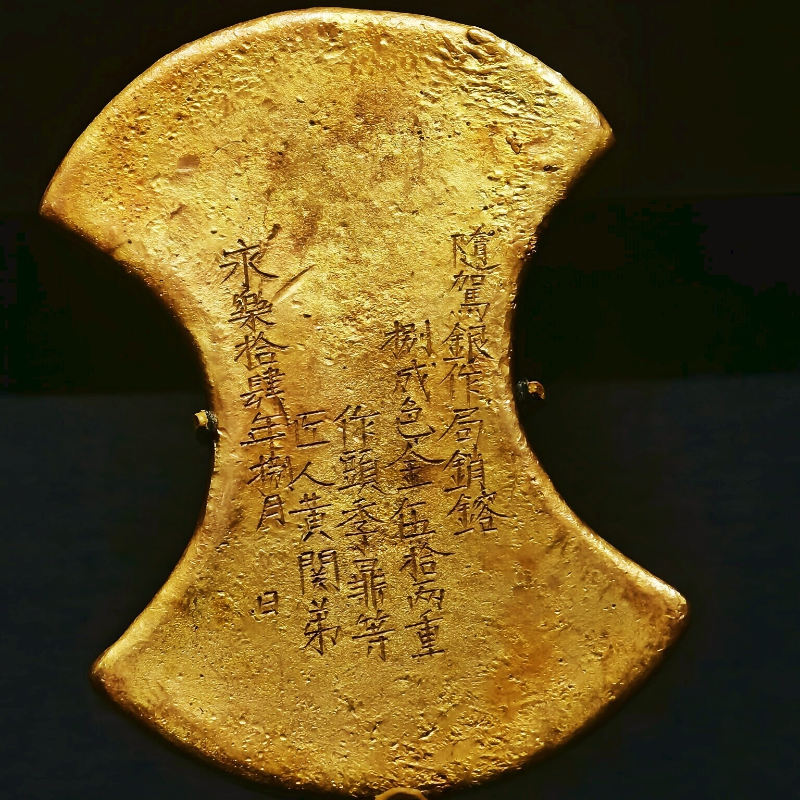 隨駕銀作局銷鎔
捌成色金伍拾兩重
作頭季鼐等
匠人黃関弟
永樂拾肆年捌月 日